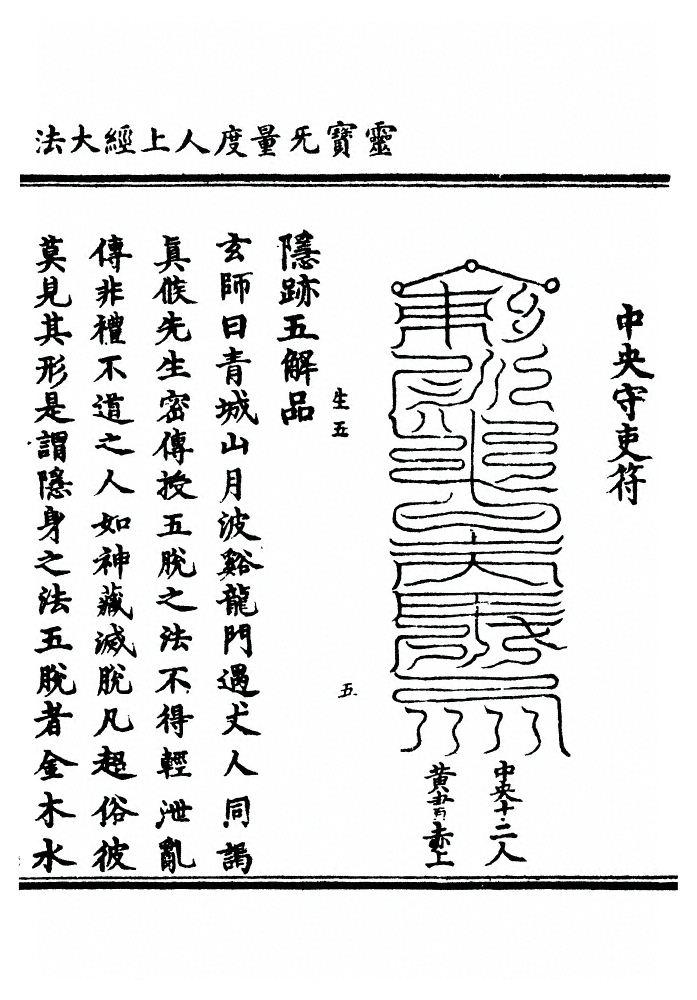 靈寶旡量度人上經大法
中央守吏符
中央十二人
黃書赤上
生五
五
隱跡五解品
玄師曰青城山月波谿龍門遇丈人同謁
真㑨先生密傳授五脫之法不得輕泄亂
傳非禮不道之人如神藏滅脫凡超俗彼
莫見其形是謂隱身之法五脫者金木水